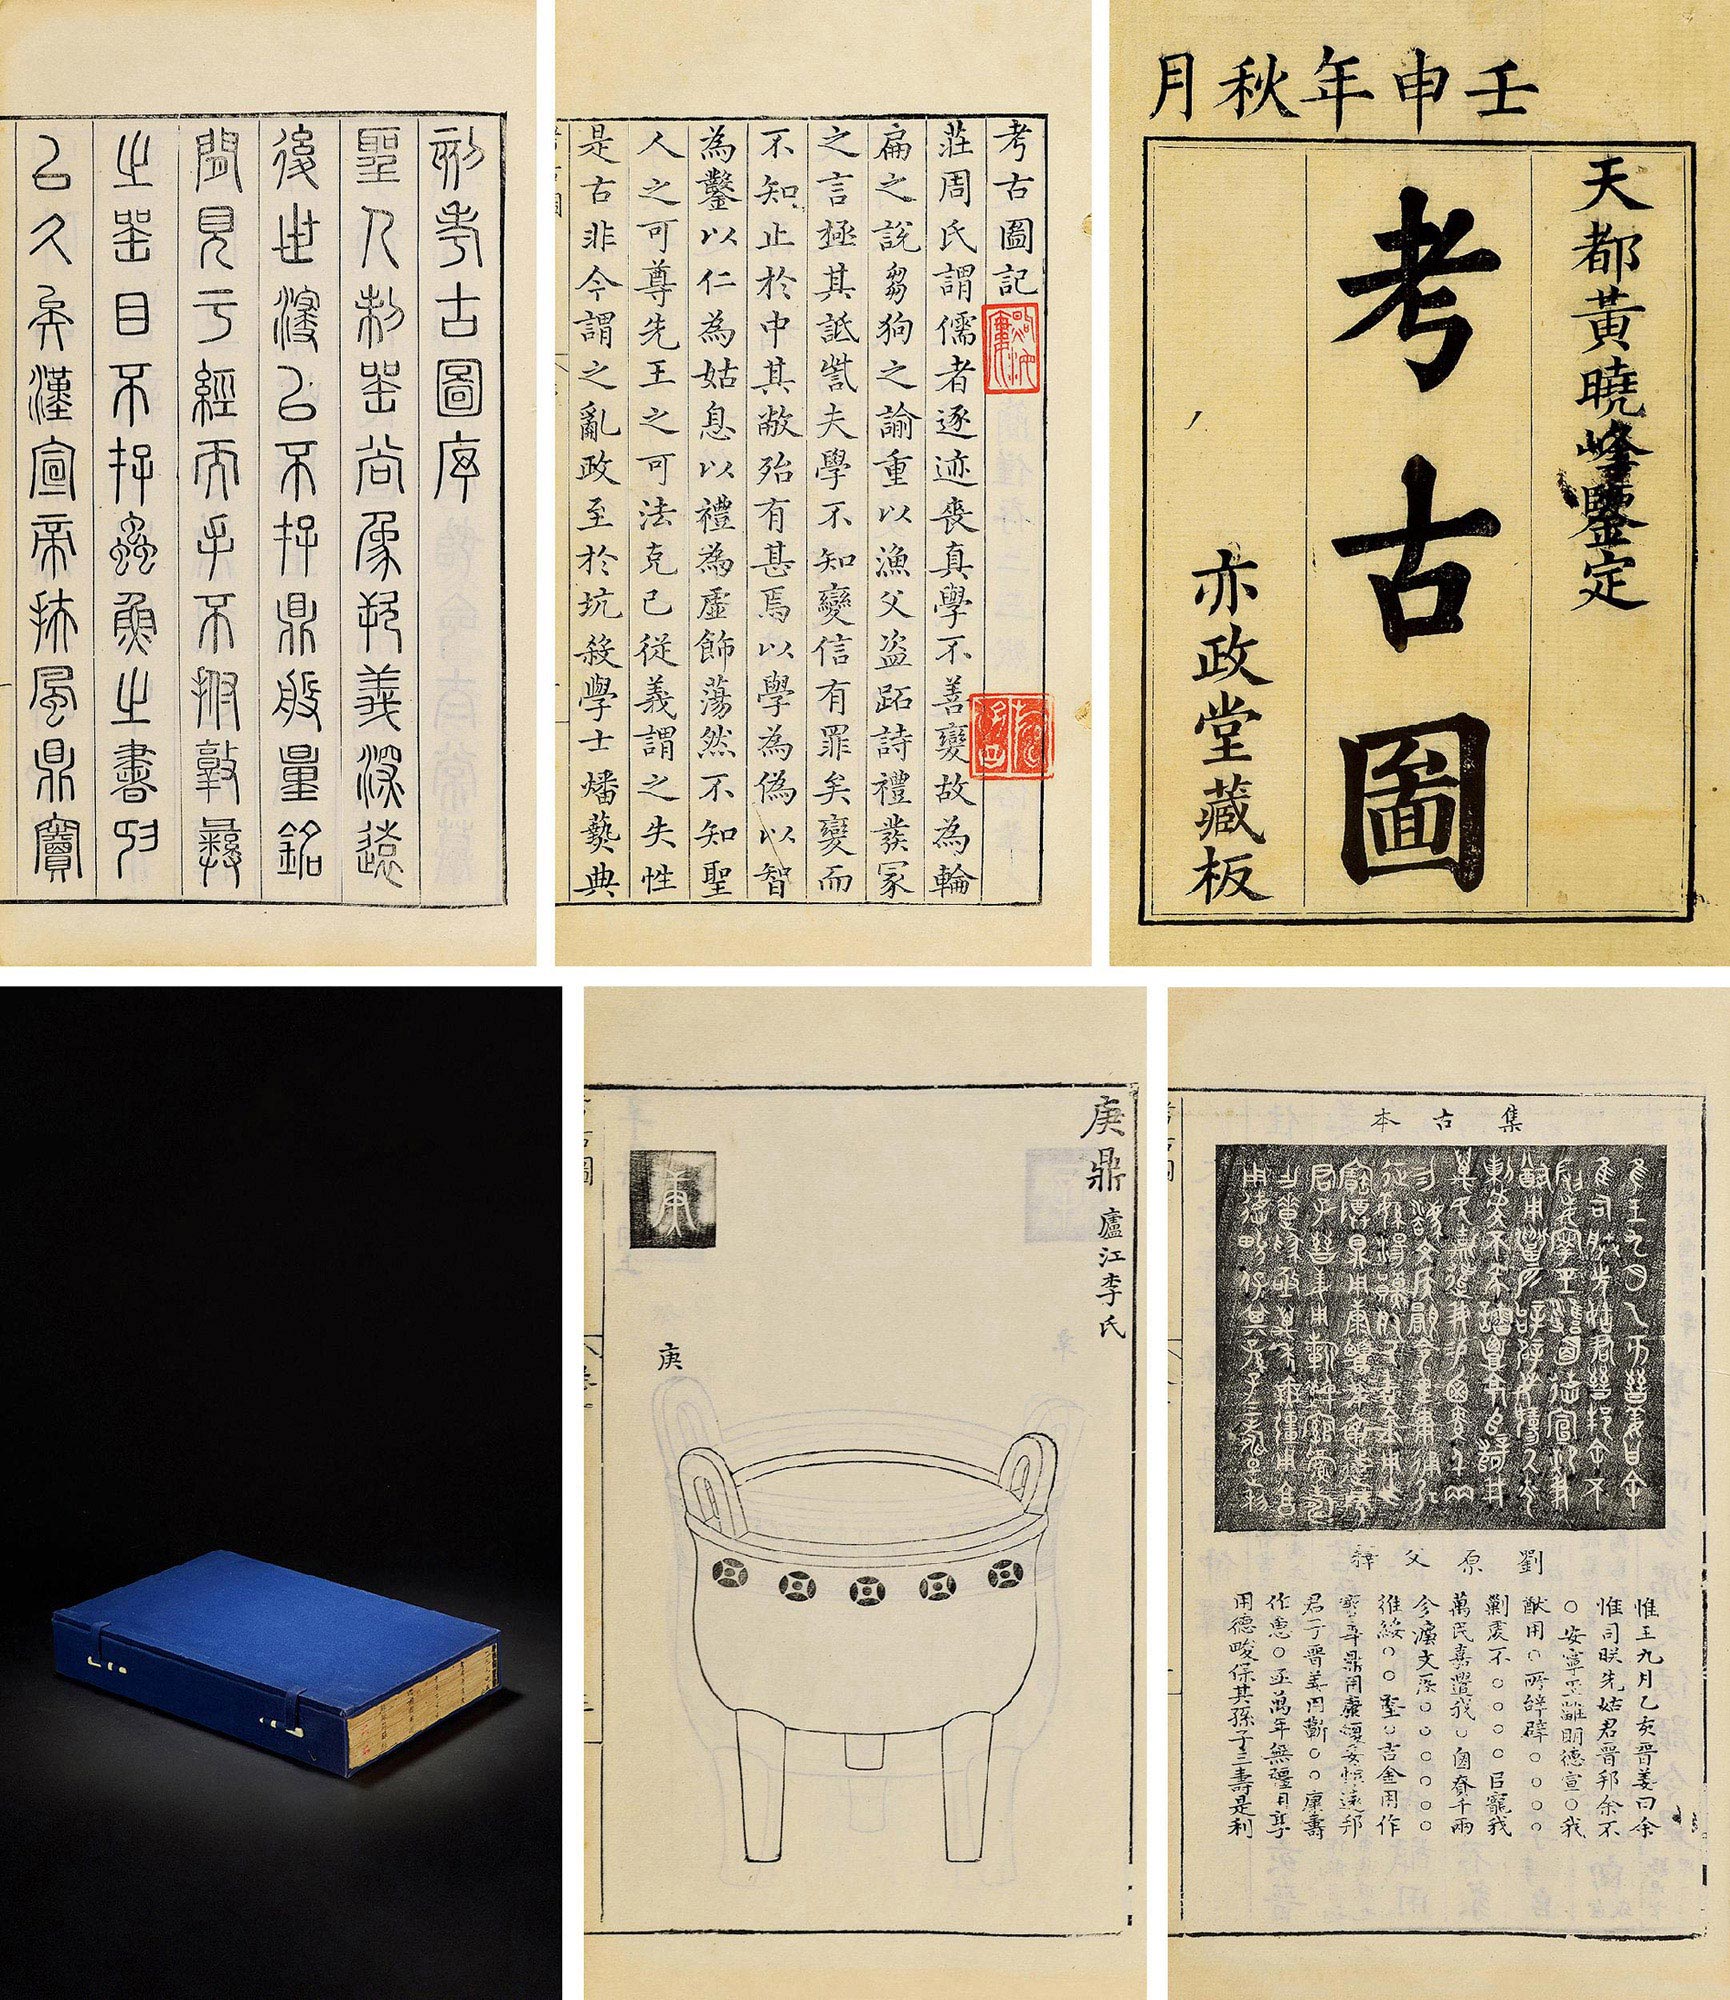 刻考古圖序
聖人制器尚象所義深遠
後世寖以不存鼎殷量銘
聞見于經而手不拊敦彝
之器目不存蟲魚之書所
以久矣漢宣帝扶風鼎寶
考古圖記
莊周氏謂儒者逐迹喪真學不善變故為輪
扁之說芻狗之諭重以漁父盜跖詩禮發冢
之言極其詆訾夫學不知變信有罪矣變而
不知止於中其敝殆有甚焉以學為偽以智
為鑿以仁為姑息以禮為虛飾蕩然不知聖
人之可尊先王之可法克己從義謂之失性
是古非今謂之亂政至於坑殺學士燔爇典
壬申年秋月
天都黃曉峰鑒定
考古圖
亦政堂藏板
庚鼎 廬江李氏
庚
集古本
劉原父釋
惟王九月乙亥晉姜曰余
惟司朕先姑君晉邦余不
○安寧巠雝明德宣○我
猷用○所辝辟○○○○
剿虔不○○○○㠯寵我
萬民嘉遣我○鹵賚千兩
今瀘文矦○○○○○○
征綏○○堅○吉金用作
寶尊鼎用康頀妥懷遠邦
君子晉姜用蘄○○康壽
作惠○亟萬年無疆用享
用德畯保其孫子三壽是利